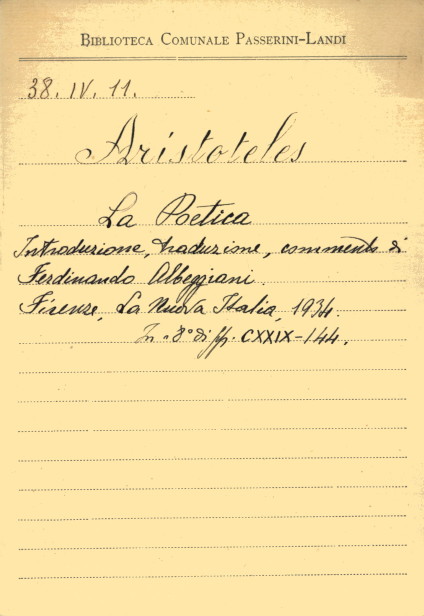 BIBLIOTECA COMUNALE PASSERINI-LANDI
38. IV. 11.
Aristoteles
La Poetica
Introduzione, traduzione, commento di
Ferdinando Albeggiani.
Firenze, La Nuova Italia, 1934.
In-8° di pp. CXXIX-144.